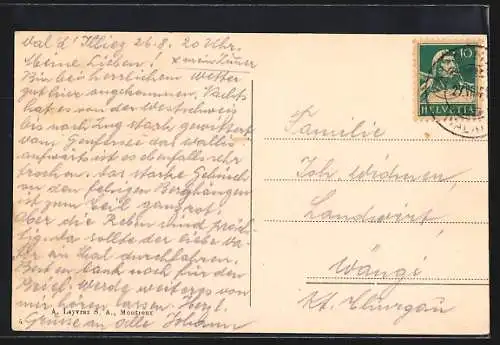 Val d'Illiez 26.8. 20 Uhr.
Meine Lieben! x mein Zimmer
Bin bei herrlichem Wetter
gut hier angekommen. Nachts
hat es von der Westschweiz
bis nach Zug stark gewittert
vom Genfersee das Wallis
aufwärts ist es ebenfalls sehr
trocken. Das starke Gebüsch
an den felsigen Berghängen
ist zum Teil ganz rot.
Aber die Reben sind präch-
tig. Da sollte der liebe Va-
ter einmal durchfahren.
Besten Dank noch für den
Brief. Werde weiteres von
mir hören lassen. Herzl.
Grüsse an alle Johann
A. Layvraz S. A., Montreux
10
HELVETIA
Familie
Joh. Widmer,
Landwirt,
Wängi
Kt. Thurgau